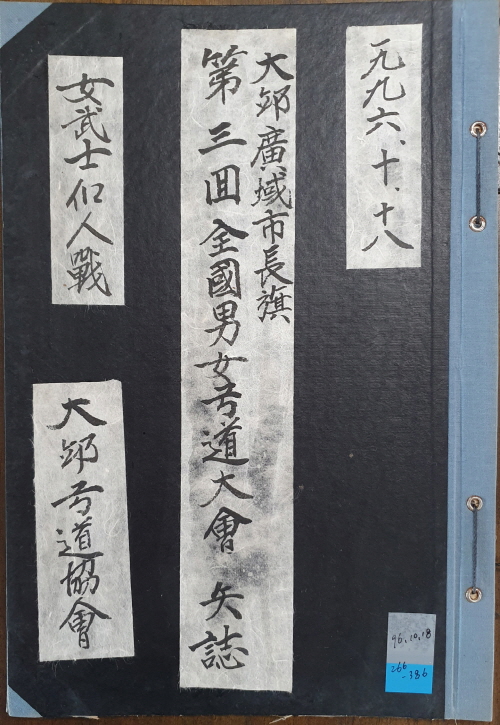 一九九六、十、十八
大邱廣域市長旗
第三回全國男女弓道大會 矢誌
女武士個人戰
大邱弓道協會
96.10.18
266
-386